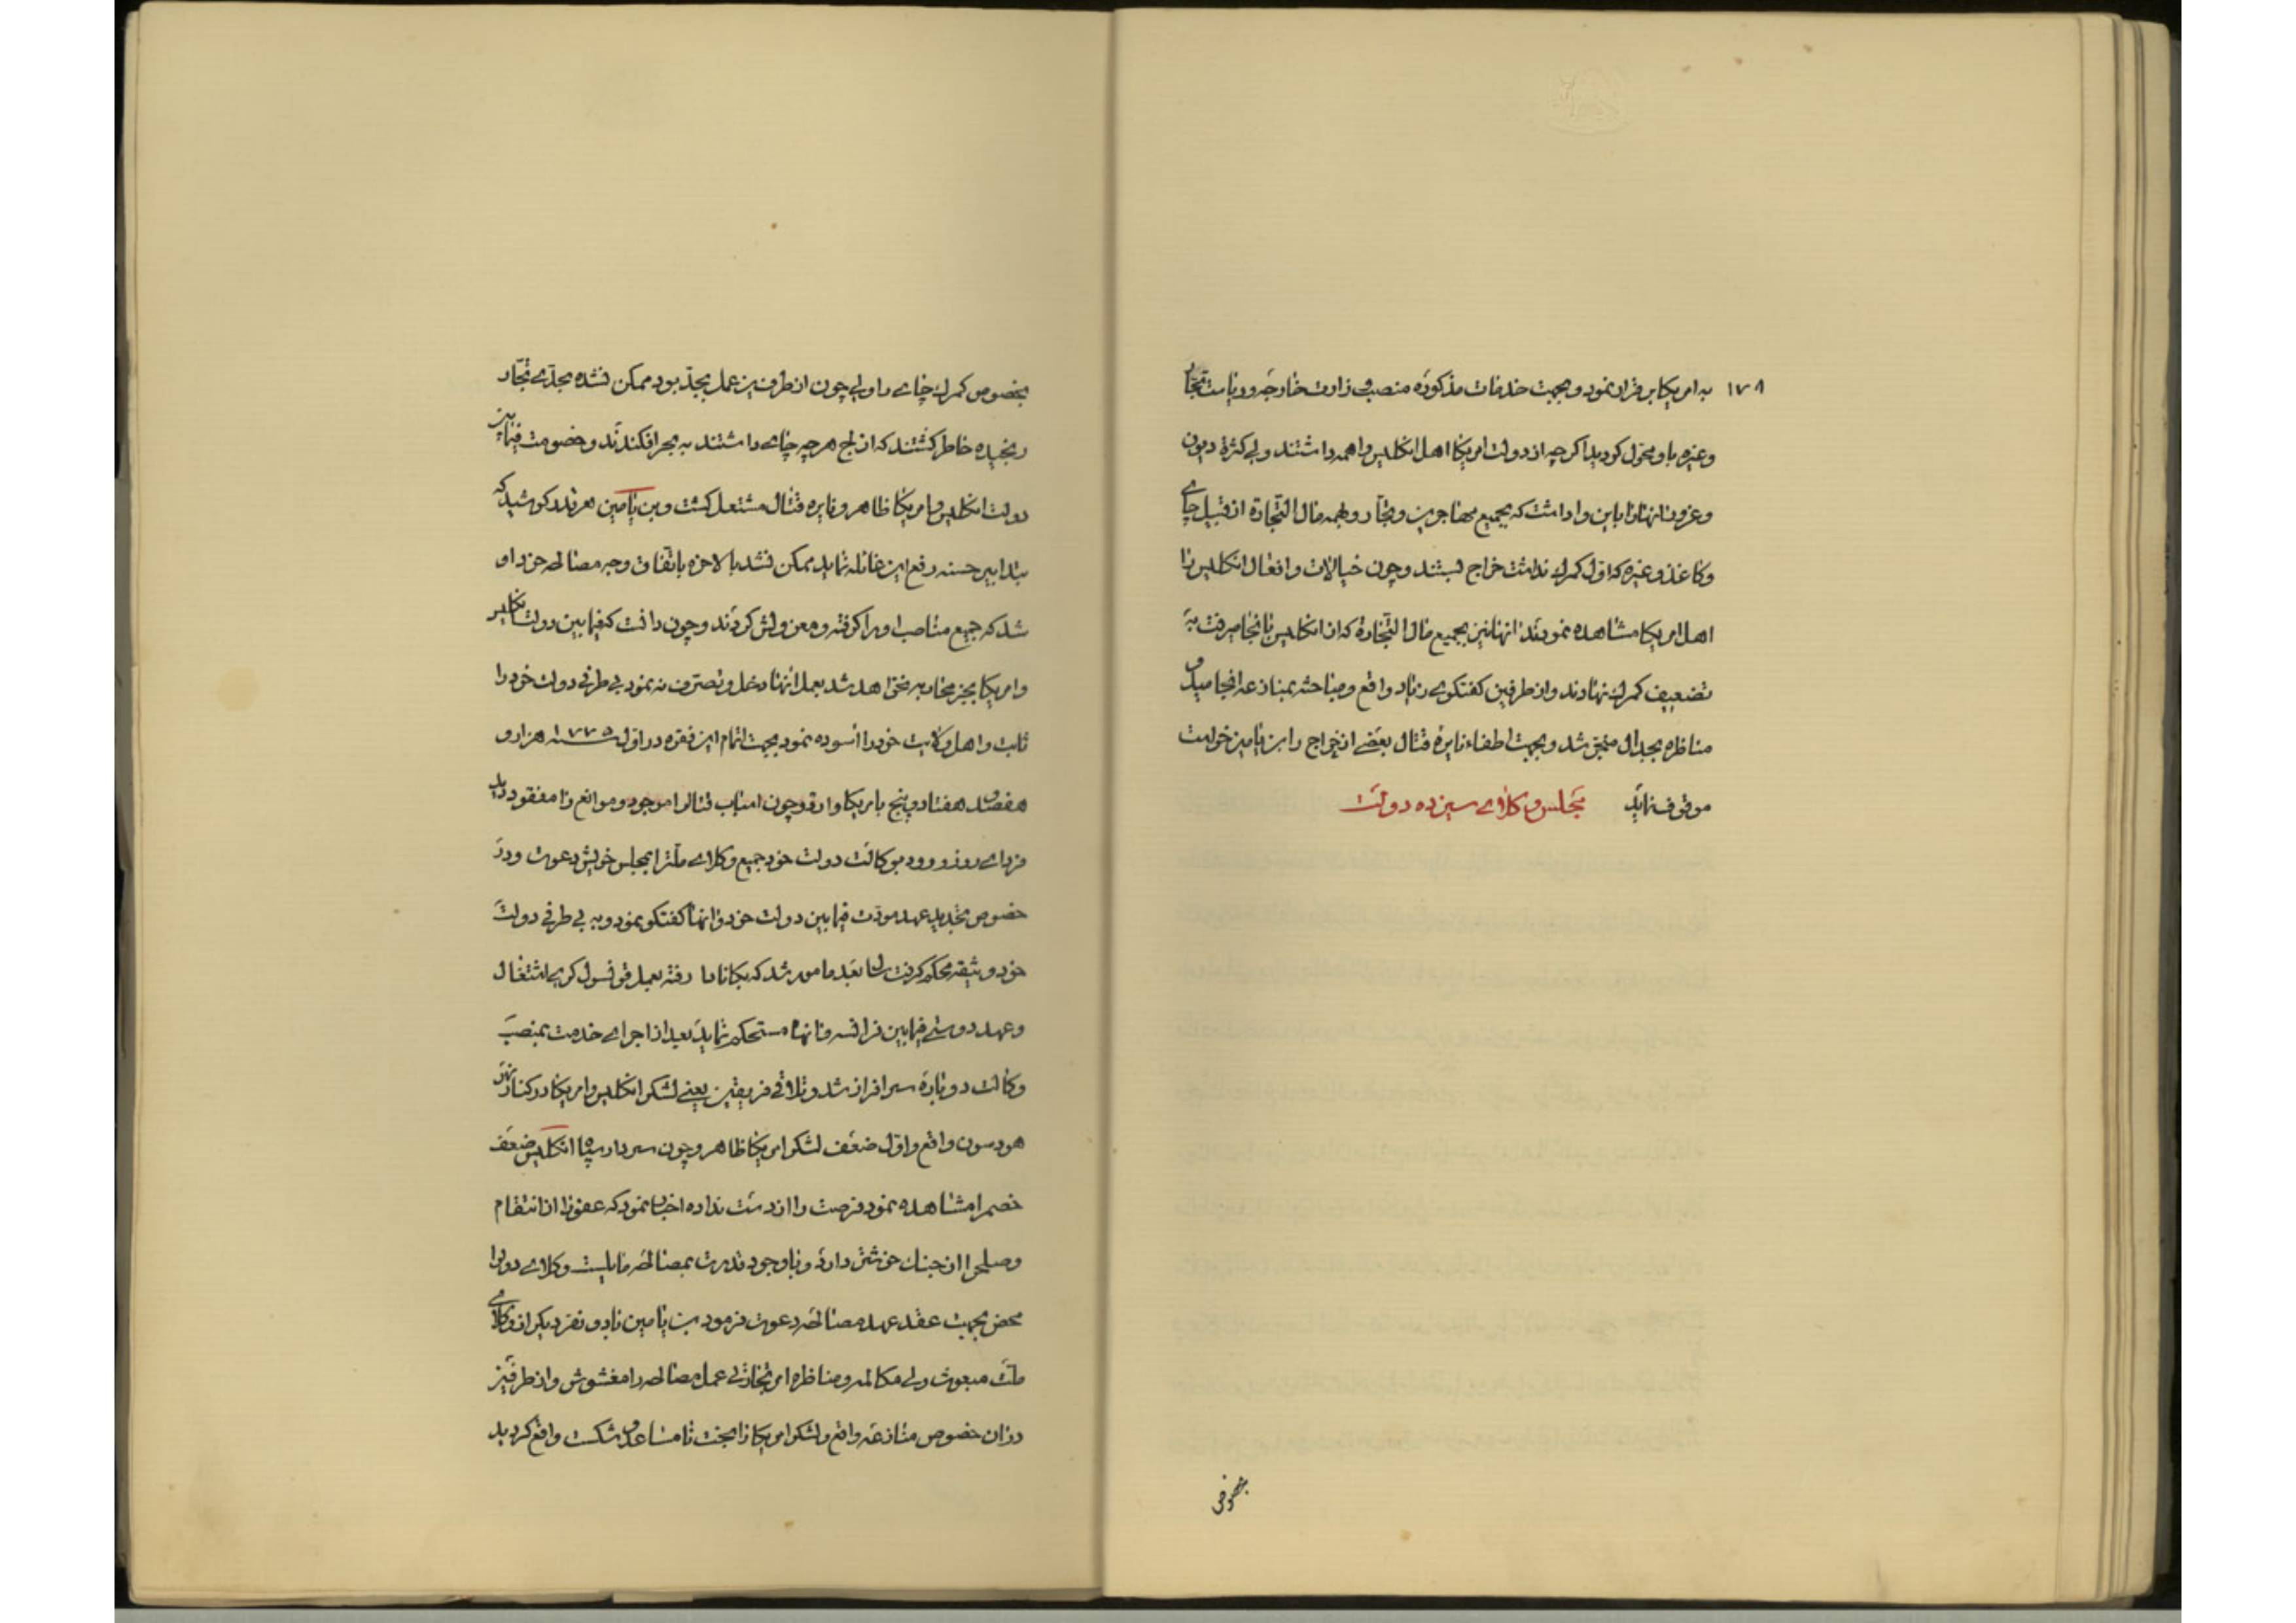 ۱۷۸
به امریکا بر قرار نمود و بجهت خدمات مذکوره منصب وزارت خارجه و ریاست تجار
وغیره باو محول کردید اکرچه از دولت امریکا اهل انکلیس واهمه داشتند ولی کثرة دیون
وغرور انها را باین وا داشت که بجمیع مهاجرین و تجار و بهمه مال التجارة از قبیل چای
و کاغذ و غیره که اول کمرک نداشت خراج بستند و چون خیالات و افعال انکلیس را
اهل امریکا مشاهده نمودند انها نیز بجمیع مال التجارة که از انکلیس بانجا میرفت به
تضعیف کمرک نهادند و از طرفین کفتکوی زیاد واقع و مباحثه بمنازعه انجامید و
مناظره بجدال منجر شد و بجهت اطفاء نایرة قتال بعضی از خراج را بن یامین خواست
موقوف نماید مجلس وکلای سیزده دولت
بخصوص
بخصوص کمرک چای را ولی چون از طرفین عمل بجد بود ممکن نشده بحدی تجار
رنجیده خاطر کشتند که از لج هر چه چای داشتند به بحر افکندند و خصومت فیمابین
دولت انکلیس و امریکا ظاهر و نایره قتال مشتعل کشت و بن یامین هر قدر کوشید که
بتدابیر حسنه رفع این غائله نماید ممکن نشد بالاخره باتفاق وجه مصالحه خرد او
شد که جمیع مناصب او را کرفته و معزولش کردند و چون دانست که فیمابین دولت انکلیس
و امریکا بجز محاربه نخواهد شد بعمل انها دخل و تصرف نه نمود بی طرفی دولت خود را
ثابت و اهل ولایت خود را اسوده نمود بجهت اتمام این فقره در اول سنه ۱۷۷۵ هزار و
هفصد و هفتاد و پنج بامریکا وارد و چون اسباب قتال را موجود و موانع را مفقود دید
فردای روز ورود بوکالت دولت خود جمیع وکلای ملت را بمجلس خویش دعوت و در
خصوص تجدید عهد مودت فیمابین دولت خود و انها کفتکو نمود و به بی طرفی دولت
خود وثیقه محکم کرفت بعد مامور شد که بکانادا رفته بعمل قونسول کری اشتغال
و عهد دوستی فیمابین فرانسه و انها مستحکم نماید بعد از اجرای خدمت بمنصب
وکالت دوباره سرافراز شد و تلاقی فریقین یعنی لشکر انکلیس و امریکا در کنار نهر
هودسون واقع و اول ضعف لشکر امریکا ظاهر و چون سردار سپاه انکلیس ضعف
خصم را مشاهده نمود فرصت را از دست نداده اخبار نمود که عفو را از انتقام
و صلح را از جنک خوشتر دارد و با وجود قدرت بمصالحه مایلست وکلای دول را
محض بجهت عقد عهد مصالحه دعوت فرمود بن یامین با دو نفر دیکر از وکلای
ملت مبعوث ولی مکالمه و مناظره ای تجارتی عمل مصالحه را مغشوش و از طرفین
در ان خصوص منازعه واقع و لشکر امریکا را بخت نامساعد و شکست واقع کردید